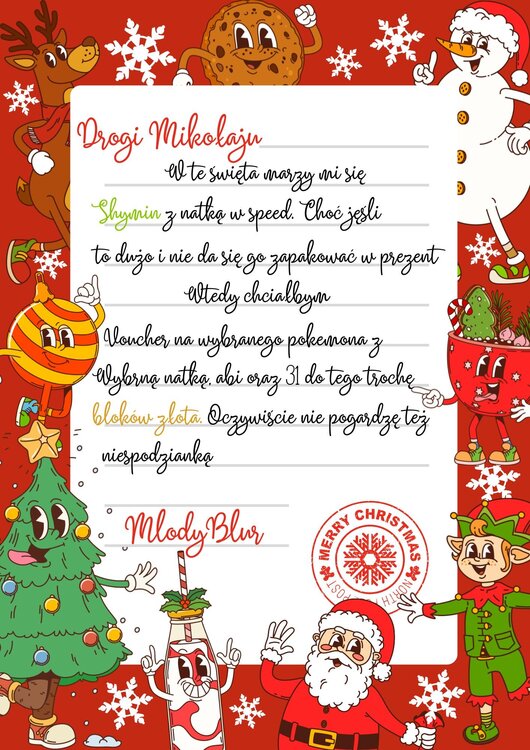 Drogi Mikołaju
W te święta marzy mi się
Shymin z natką w speed. Choć jęśli
to dużo i nie da się go zapakować w prezent
Wtedy chciałbym
Voucher na wybranego pokemona z
Wybrną natką, abi oraz 31 do tego trochę
bloków złota. Oczywiście nie pogardzę też
niespodzianką
MlodyBlur
MERRY CHRISTMAS
NORTH POST